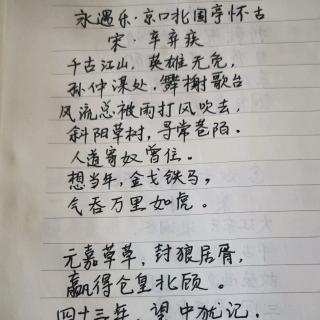 永遇乐·京口北固亭怀古
宋·辛弃疾
千古江山,英雄无觅,
孙仲谋处,舞榭歌台
风流总被雨打风吹去,
斜阳草树,寻常巷陌。
人道寄奴曾住。
想当年,金戈铁马,
气吞万里如虎。
元嘉草草,封狼居胥,
赢得仓皇北顾。
四十三年,望中犹记,